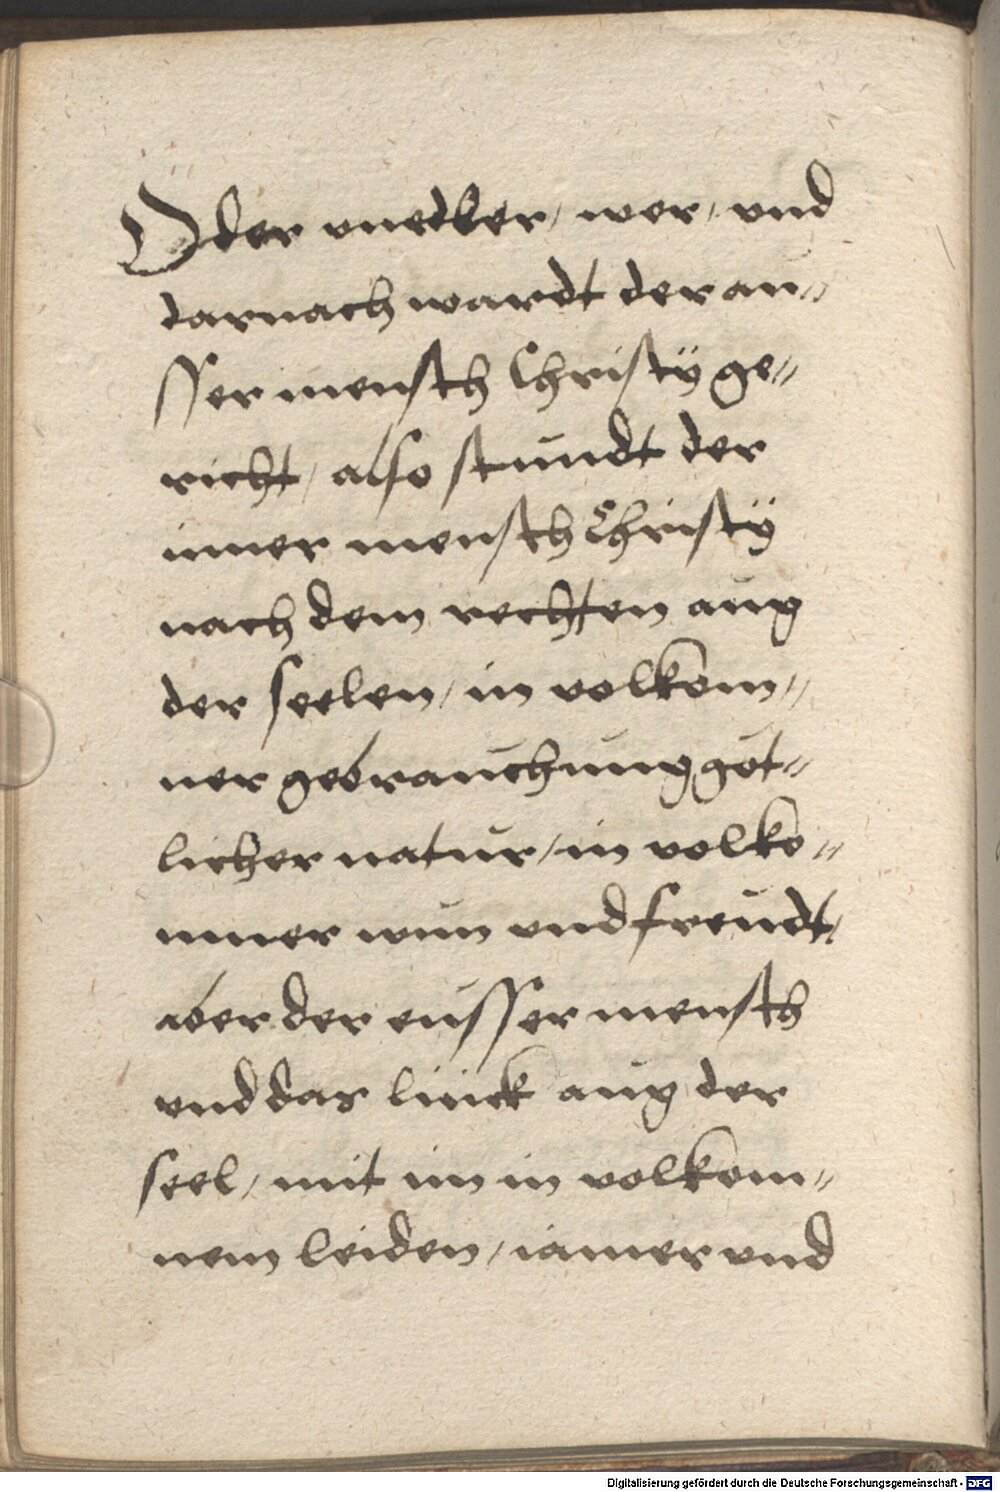 Oder unedler / wer / und
darnach wardt der au//
sser mensch Christÿ ge//
richt / also stundt der
inner mensch Christÿ
nach dem rechten aug
der seelen / in volkom//
ner gebrauchung got//
licher natur / in volko//
mner wun und freudt /
aber der eusser mensch
und das linck aug der
seel / mit im in volkom//
nem leiden / iamer und
Digitalisierung gefördert durch die Deutsche Forschungsgemeinschaft - DFG